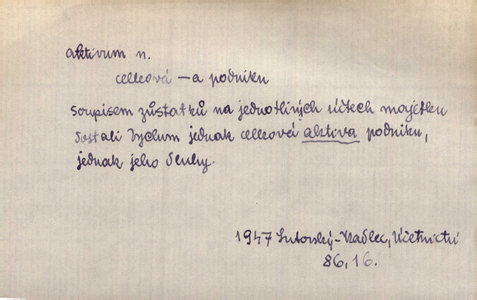 aktivum n.
celková – a podniku
Soupisem zůstatků na jednotlivých účtech majetku
dostali bychom jednak celková aktiva podniku,
jednak jeho dluhy.
1947 Kadlec, Účetnictví
86, 16.